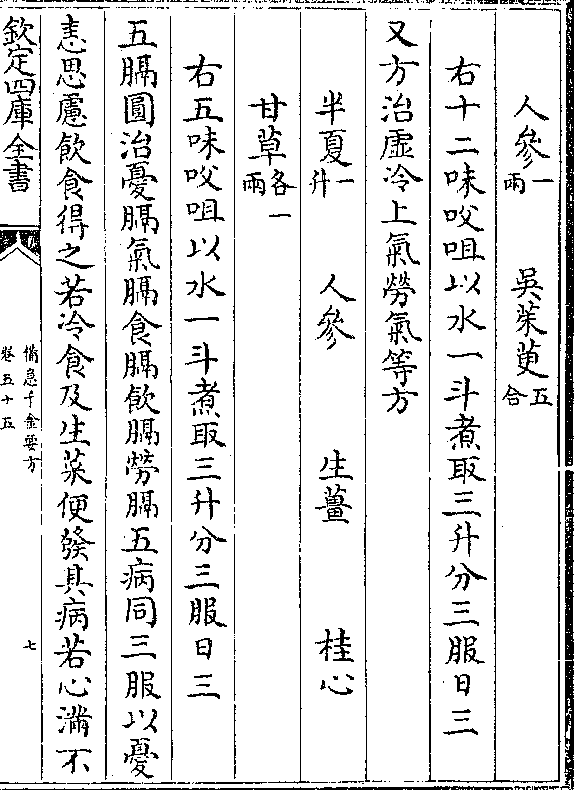 人參一兩　吳茱萸五合
右十二味㕮咀以水一斗煮取三升分三服日三
又方治虛冷上氣勞氣等方
半夏一升　人參　生薑　桂心
甘草各一兩
右五味㕮咀以水一斗煮取三升分三服日三
五膈圓治憂膈氣膈食膈飲膈勞膈五病同三服以憂
恚思慮飲食得之若冷食及生菜便發其病若心滿不
欽定四庫全書
備急千金要方
卷五十五
七